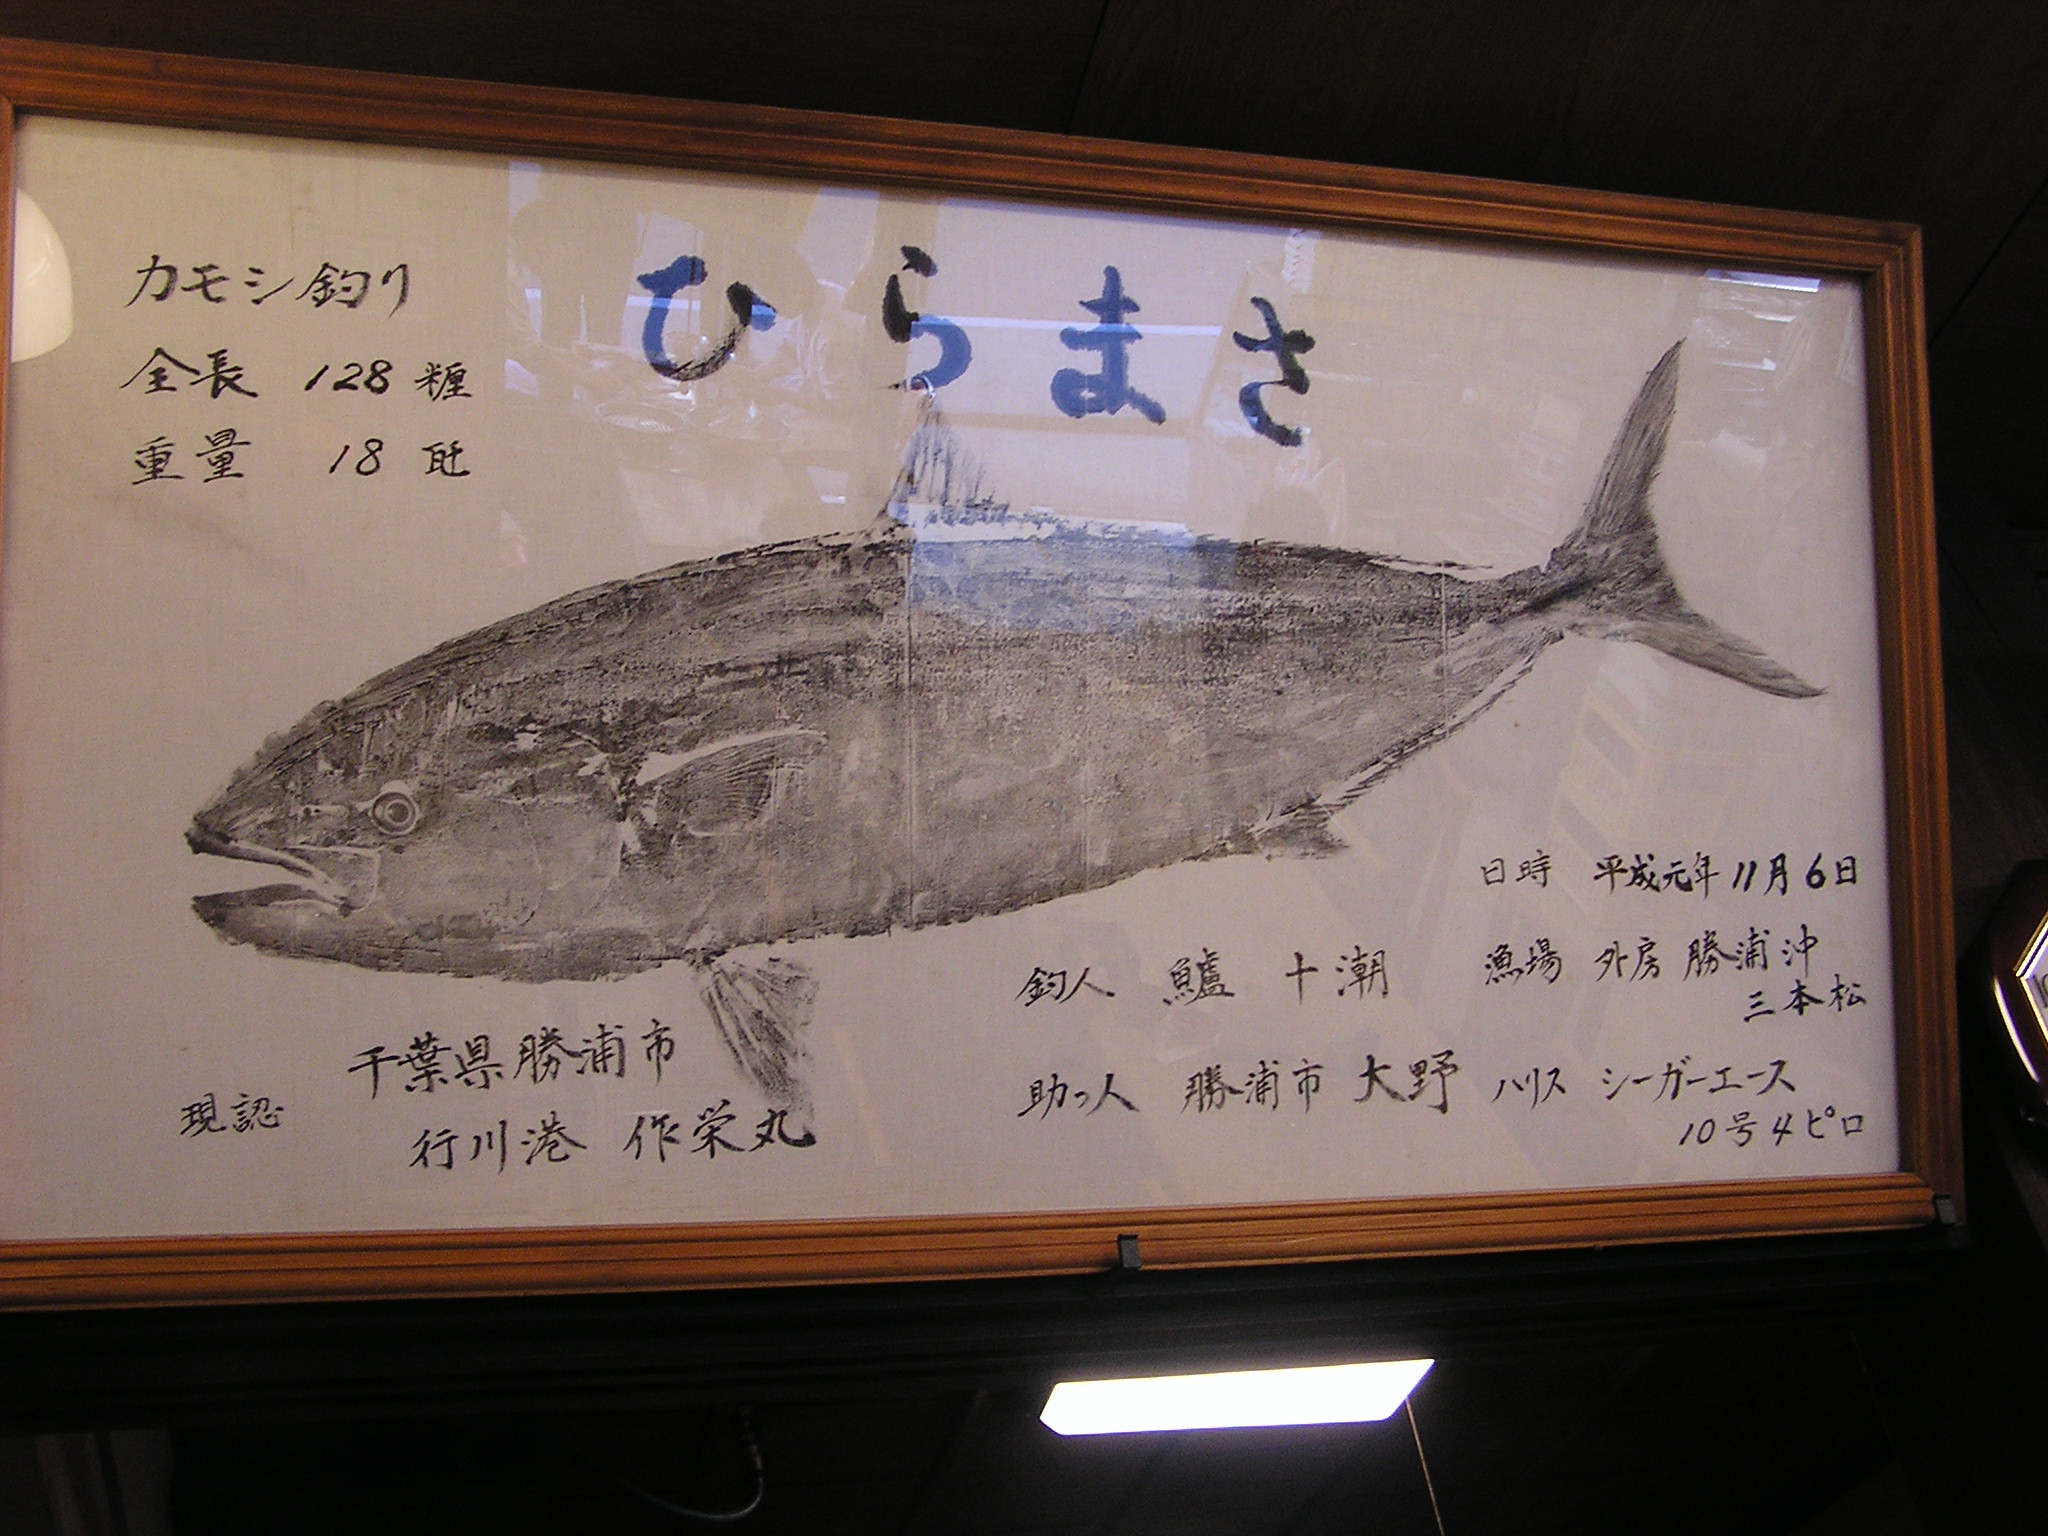 ひらまさ
カモシ釣り
全長 128 糎
重量 18 瓩
日時 平成元年11月6日
漁場 外房 勝浦沖
三本松
釣人 鱸 十潮
助っ人 勝浦市 大野
ハリス シーガーエース
10号4ピロ
現認 千葉県勝浦市
行川港 作栄丸